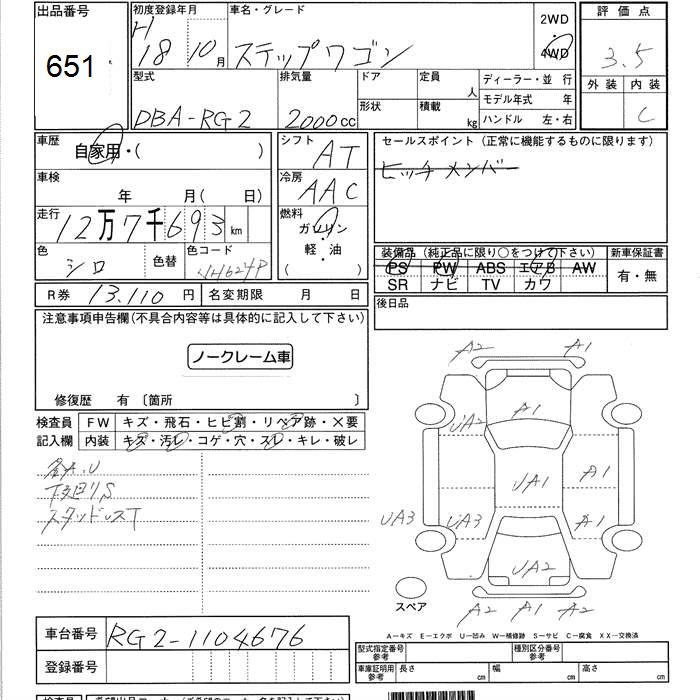 出品番号
651
初度登録年月
H
18 10月
車名・グレード
ステップワゴン
2WD
・
4WD
評価点
3.5
外装 内装
C
型式
DBA-RG2
排気量
2000cc
ドア
形状
定員
人
積載
kg
ディーラー・並 行
モデル年式 年
ハンドル 左・右
車歴
自家用・( )
シフト
AT
セールスポイント (正常に機能するものに限ります)
ヒッチメンバー
車検
年 月( 日)
冷房
AAC
走行
12万7千693km
燃料
ガソリン
・
軽・油
( )
色
シロ
色替
色コード
NH624P
装備品 (純正品に限り○をつけて下さい)
PS PW ABS エアB AW
SR ナビ TV カワ
新車保証書
有・無
R券 13,110 円
名変期限 月 日
後日品
注意事項申告欄(不具合内容等は具体的に記入して下さい)
ノークレーム車
修復歴 有 〔箇所 〕
検査員
記入欄
FW キズ・飛石・ヒビ割・リペア跡・×要
内装 キズ・汚レ・コゲ・穴・スレ・キレ・破レ
A.U
下廻りS
スタッドレスT
A2 A1
A1
UA2
UA1
A1
UA3 UA3
A1
UA2
スペア
A2 A1 A2
A－キズ E－エクボ U－凹み W－補修跡 S－サビ C－腐食 XX－交換済
車台番号
RG2-1104676
登録番号
型式指定番号
参考
種別区分番号
参考
車庫証明用
参考
長さ cm
幅 cm
高さ cm
検査員